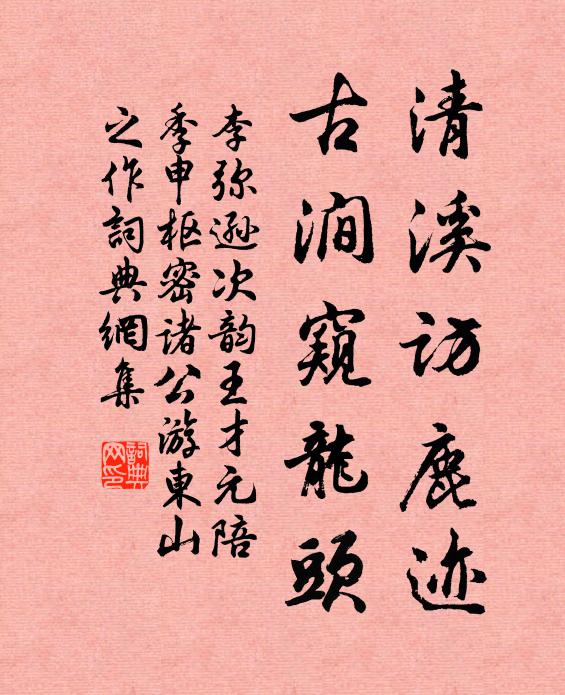 清溪访鹿迹
古涧窥龍頭
李弥逊次韵王才元陪
季申枢密诸公游東山
之作詞典網集
詞典网印